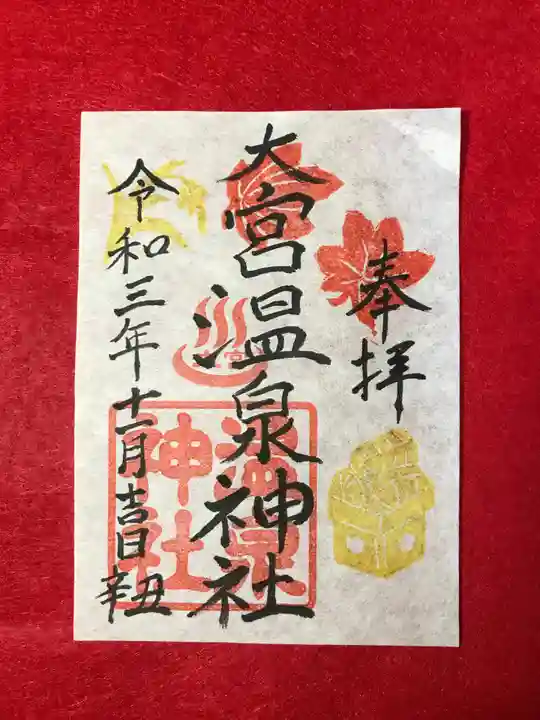 奉拝
大宮温泉神社
令和三年十一月吉日
辛丑
温泉
神社